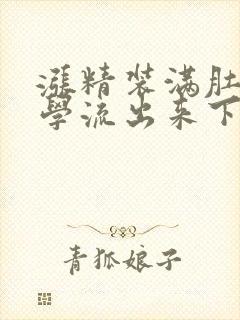 漲精装满肚
學流出来下
青狐娘子